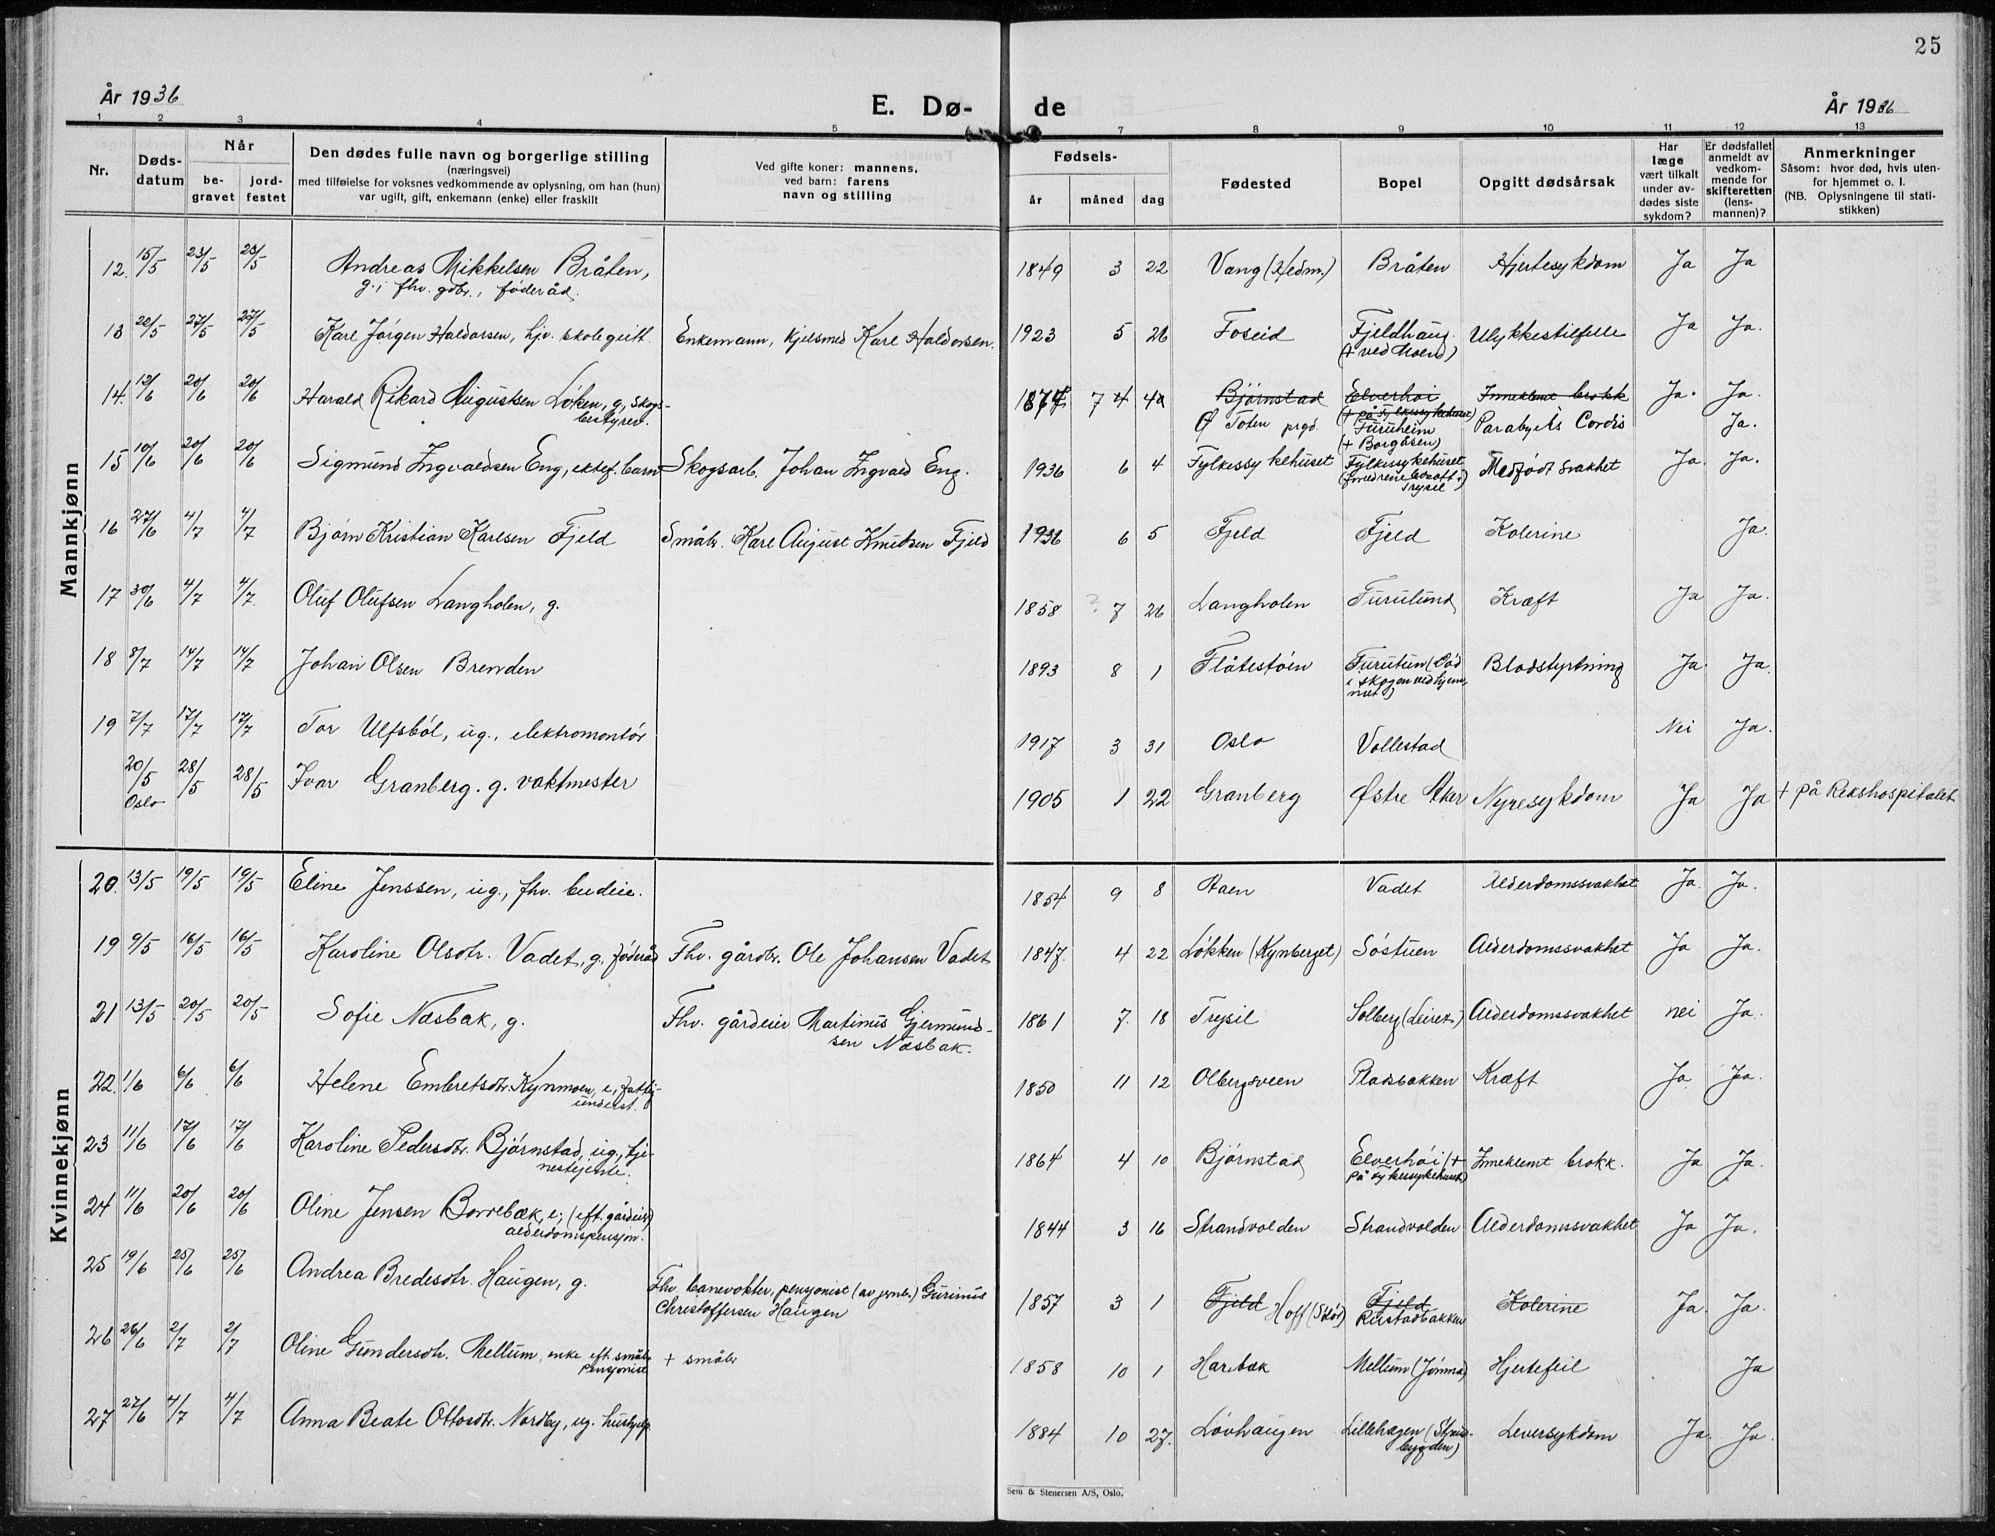 25
År 1936
E. Dø-
de
År 1936
1 2 3 4 5 7 8 9 10 11 12 13
Nr.
Døds-
datum
Når
be-
gravet
jord-
festet
Den dødes fulle navn og borgerlige stilling
(næringsvei)
med tilføielse for voksnes vedkommende av oplysning, om han (hun)
var ugift, gift, enkemann (enke) eller fraskilt
Ved gifte koner: mannens,
ved barn: farens
navn og stilling
Fødsels-
år
måned
dag
Fødested
Bopel
Opgitt dødsårsak
Har
læge
vært tilkalt
under av-
dødes siste
sykdom?
Er dødsfallet
anmeldt av
vedkom-
mende for
skifteretten
(lens-
mannen)?
Anmerkninger
Såsom: hvor død, hvis uten-
for hjemmet o. l.
(NB. Oplysningene til stati-
stikken)
Mannkjønn
12. 15/5 23/5 23/5 Andreas Mikkelsen Bråten, 1849 3 22 Vang (Hedm.) Bråten Hjertesykdom Ja Ja
g., fhv. gdbr., føderåd.
13 22/5 27/5 27/5 Karl Jørgen Haldorsen, hjv. skolegutt. Enkemann, kjelsmed Karl Haldorsen. 1923 5 26 Foseid Fjeldhaug Ulykkestilfelle Ja Ja.
(+ ved Moen)
14. 12/6 20/6 20/6 Harald Rikard Augustsen Løken, g, skogs- 1874 7 4 Bjørnstad Elverhøi Inneklemt brokk Ja. Ja.
bestyrer. (+ på Fylkessykehuset)
Ø Toten prgd. Furuheim Paralysis Cordis Ja.
(+ Borgåsen)
15 10/6 20/6 20/6 Sigmund Ingvaldsen Eng, ektef. barn Skogsarb. Johan Ingvald Eng. 1936 6 4 Fylkessykehuset Fylkessykehuset Medfødt svakhet Ja. Ja.
(foreldrene bosatt i
Trysil)
16 27/6 4/7 4/7 Bjørn Kristian Karlsen Fjeld Småbr. Karl August Knudsen Fjeld 1936 6 5 Fjeld Fjeld Kolerine Ja.
17 30/6 4/7 4/7. Oluf Olufsen Langholen, g. 1858 ? 7 26 Langholen Furulund Kræft Ja Ja.
18 8/7 14/7 14/7 Johan Olsen Brenden 1893 8 1 Flåtestøen Furutun (Død Blodstyrtning Ja. Ja.
i skogen ved hjem-
met)
19 7/7 17/7 17/7 Tor Ulfsbøl, ug., elektromontør 1917 3 31 Oslo Vollestad Nei Ja.
20/5 28/5 28/5 Ivar Granberg. g. vaktmester 1905 1 22 Granberg Østre Aker Nyresykdom Ja Ja + på Rikshospitalet
Oslo
Kvinnekjønn
20. 13/5 19/5 19/5 Eline Jenssen, ug., fhv. budeie. 1854 9 8 Aaen Vadet Alderdomssvakhet Ja. Ja.
19 9/5 16/5 16/5 Karoline Olsdtr. Vadet, g. føderåd Fhv. gårdbr. Ole Johansen Vadet 1847. 4 22 Løkken (Kynberget) Søstuen Alderdomssvakhet Ja Ja.
21 13/5 20/5 20/5 Sofie Næsbak, g. Fhv. gårdeier Martinus Gjermund- 1861 7. 18 Trysil Solberg (Leiret.) Alderdomssvakhet nei Ja.
sen Næsbak.
22. 1/6 6/6 6/6 Helene Embretsdtr. Kynmoen, e., fattig- 1850 11 12 Olbergsveen Pladsbakken Kræft Ja. Ja.
underst.
23 11/6 17/6 17/6 Karoline Pedersdtr. Bjørnstad, ug., tje- 1864 4 10 Bjørnstad Elverhøi (+ Inneklemt brokk. Ja Ja
nestejente. på Fylkessykehuset)
24 11/6 20/6 20/6 Oline Jensen Borrebæk, e., (eft. gårdeier) 1844 3 16 Strandvolden Strandvolden Alderdomssvakhet Ja Ja.
alderdomspensjon.
25 19/6 25/6 25/6 Andrea Bredesdtr. Haugen, g. Fhv. banevokter, pensjonist (av jernb.) Gurinius 1857 3 1 Fjeld Hoff (Solør) Fjeld Kolerine Ja. Ja.
Christoffersen Haugen Rustadbakken
26 26/6 2/7 2/7 Oline Gundersdtr. Mellum, enke eft. småbr. + småbr 1858 10 1 Harebæk Mellum (Jømna) Hjertefeil Ja
pensjonist
27 27/6 4/7 4/7 Anna Beate Ottosdtr. Nordby, ug. hushjelp 1884 10 27. Løvhaugen Lillehagen (Strand- Leversykdom Ja. Ja.
bygden)
Sem & Stenersen A/S, Oslo.